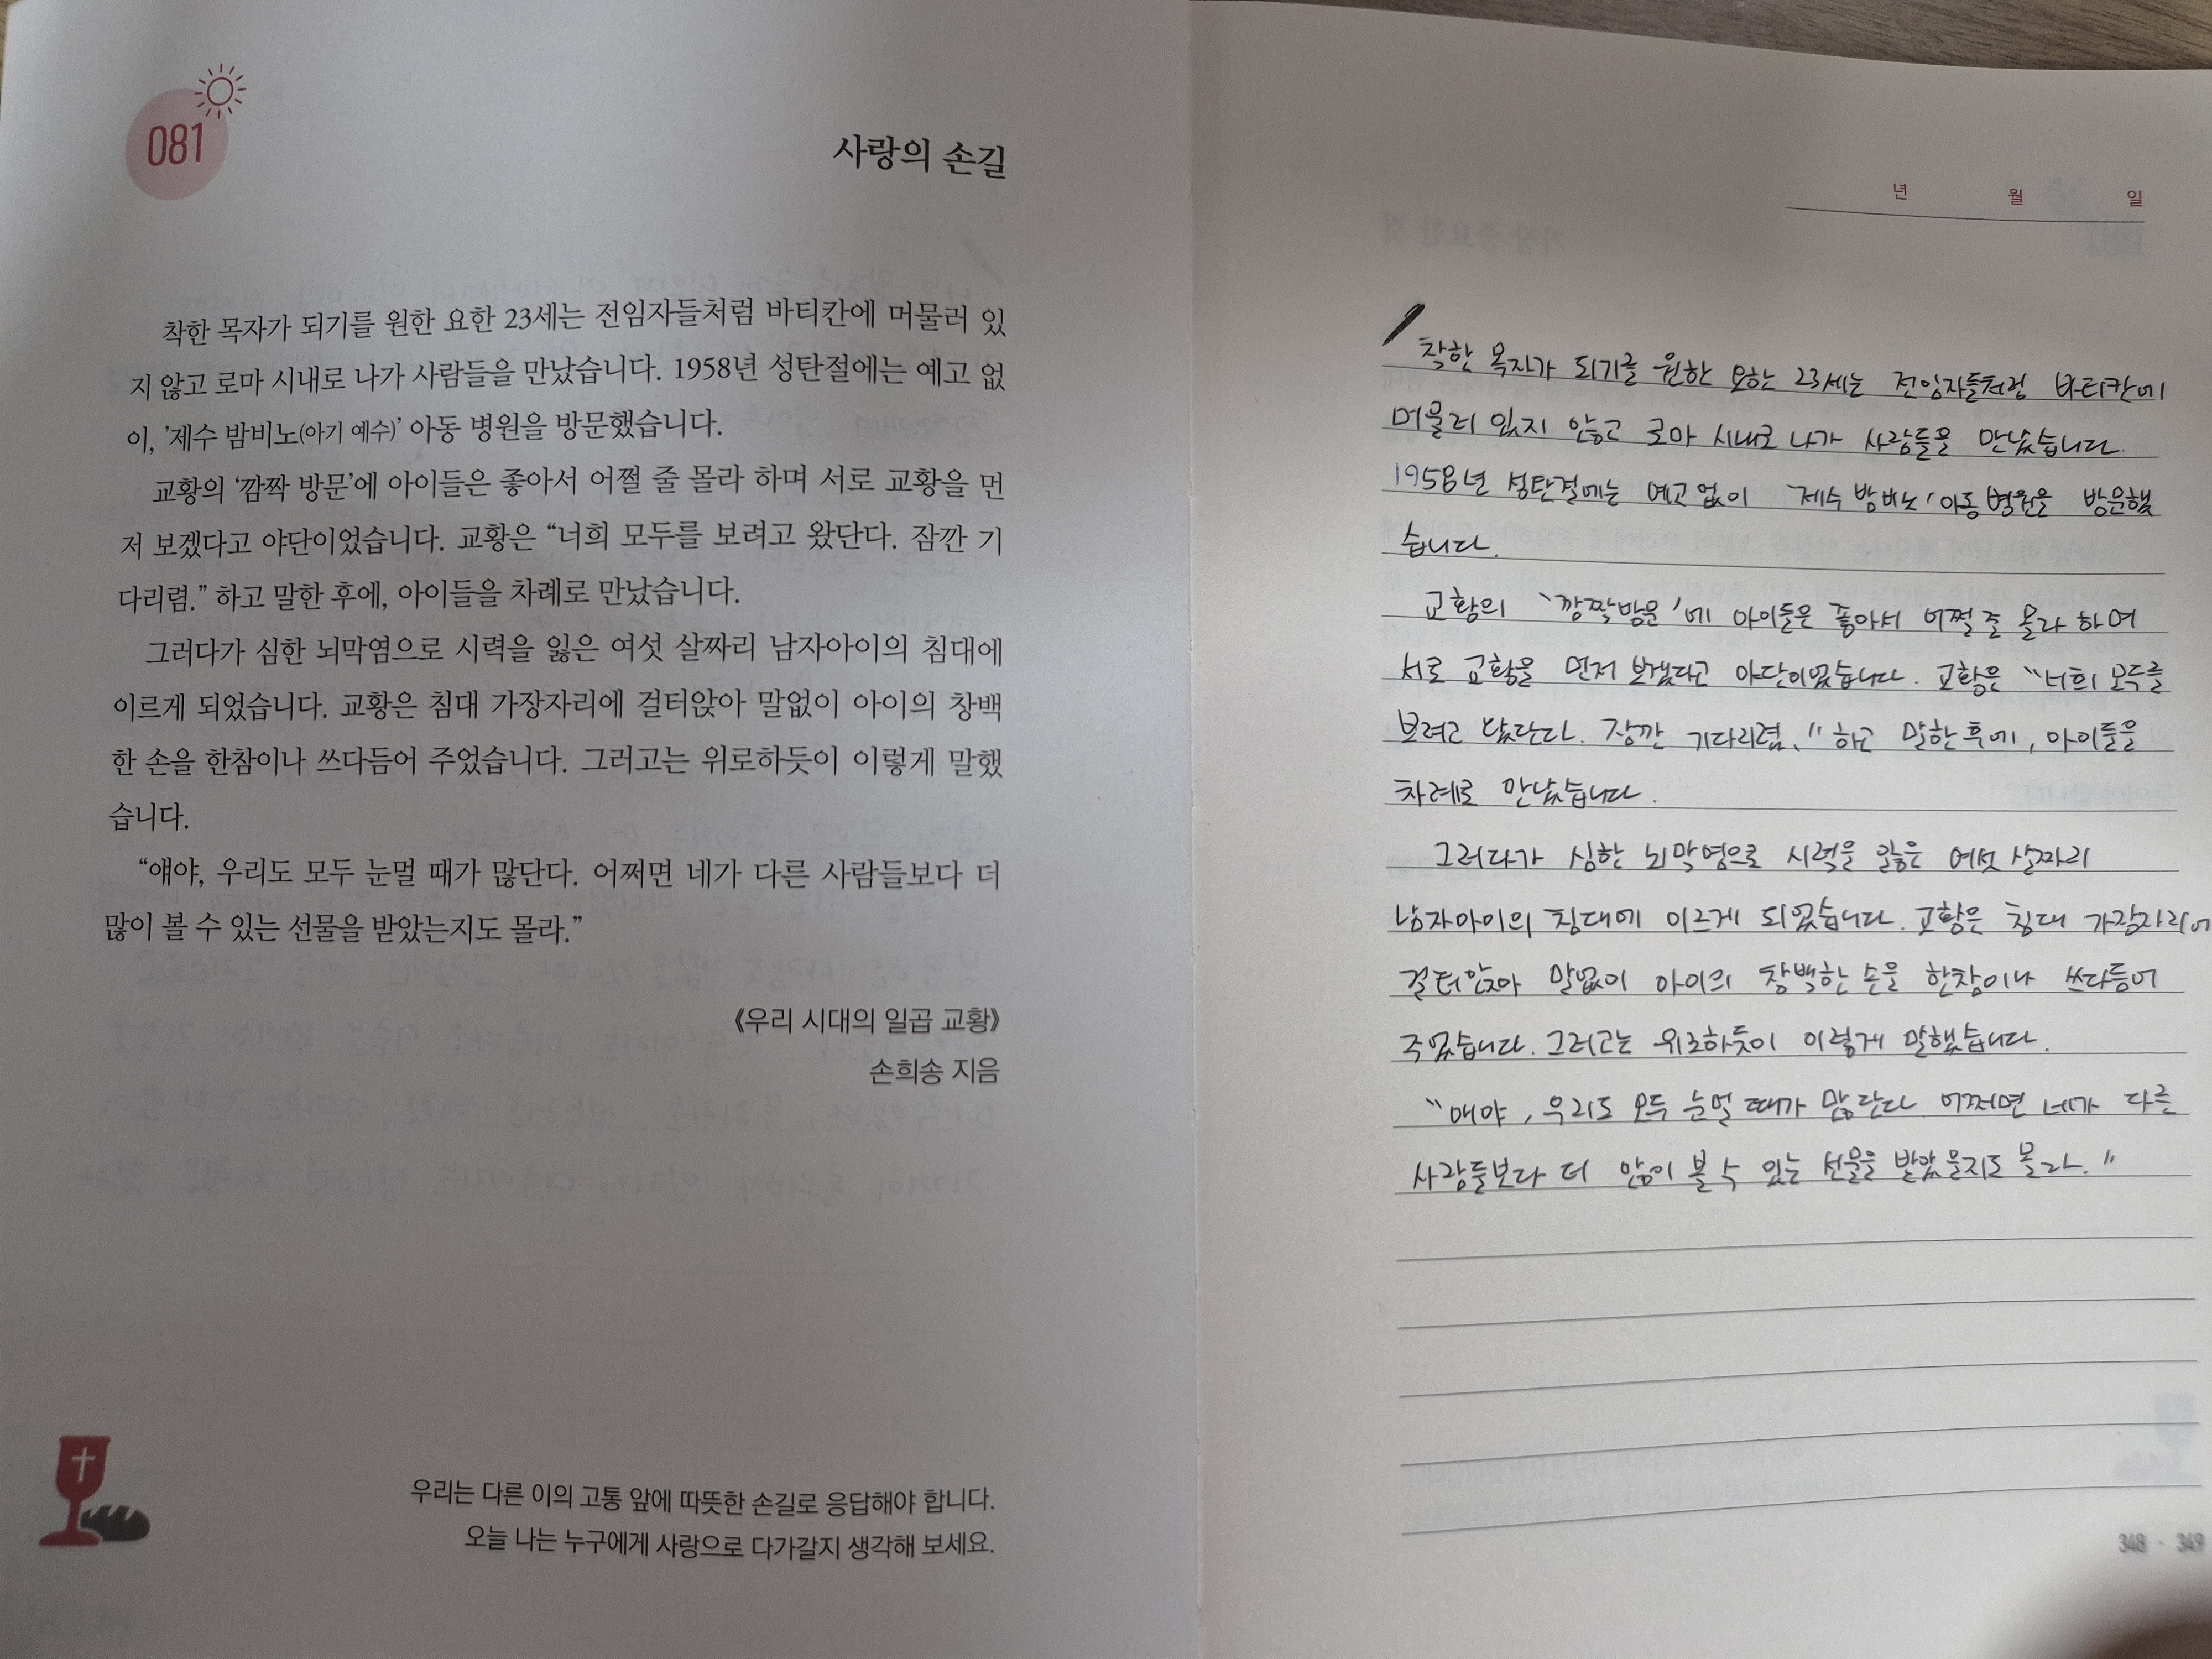 081
사랑의 손길
착한 목자가 되기를 원한 요한 23세는 전임자들처럼 바티칸에 머물러 있
지 않고 로마 시내로 나가 사람들을 만났습니다. 1958년 성탄절에는 예고 없
이, '제수 밤비노(아기 예수)' 아동 병원을 방문했습니다.
교황의 '깜짝 방문'에 아이들은 좋아서 어쩔 줄 몰라 하며 서로 교황을 먼
저 보겠다고 야단이었습니다. 교황은 "너희 모두를 보려고 왔단다. 잠깐 기
다리렴." 하고 말한 후에, 아이들을 차례로 만났습니다.
그러다가 심한 뇌막염으로 시력을 잃은 여섯 살짜리 남자아이의 침대에
이르게 되었습니다. 교황은 침대 가장자리에 걸터앉아 말없이 아이의 창백
한 손을 한참이나 쓰다듬어 주었습니다. 그러고는 위로하듯이 이렇게 말했
습니다.
"얘야, 우리도 모두 눈멀 때가 많단다. 어쩌면 네가 다른 사람들보다 더
많이 볼 수 있는 선물을 받았는지도 몰라."
《우리 시대의 일곱 교황》
손희송 지음
우리는 다른 이의 고통 앞에 따뜻한 손길로 응답해야 합니다.
오늘 나는 누구에게 사랑으로 다가갈지 생각해 보세요.
년 월 일
착한 목자가 되기를 원한 요한 23세는 전임자들처럼 바티칸에
머물러 있지 않고 로마 시내로 나가 사람들을 만났습니다.
1958년 성탄절에는 예고없이 '제수 밤비노' 아동 병원을 방문했
습니다.
교황의 '깜짝방문'에 아이들은 좋아서 어쩔 줄 몰라 하며
서로 교황을 먼저 보겠다고 야단이었습니다. 교황은 "너희 모두를
보려고 왔단다. 잠깐 기다리렴." 하고 말한 후에, 아이들을
차례로 만났습니다.
그러다가 심한 뇌막염으로 시력을 잃은 여섯 살짜리
남자아이의 침대에 이르게 되었습니다. 교황은 침대 가장자리에
걸터앉아 말없이 아이의 창백한 손을 한참이나 쓰다듬어
주었습니다. 그러고는 위로하듯이 이렇게 말했습니다.
"얘야, 우리도 모두 눈멀 때가 많단다. 어쩌면 네가 다른
사람들보다 더 많이 볼 수 있는 선물을 받았을지도 몰라."
348 · 349